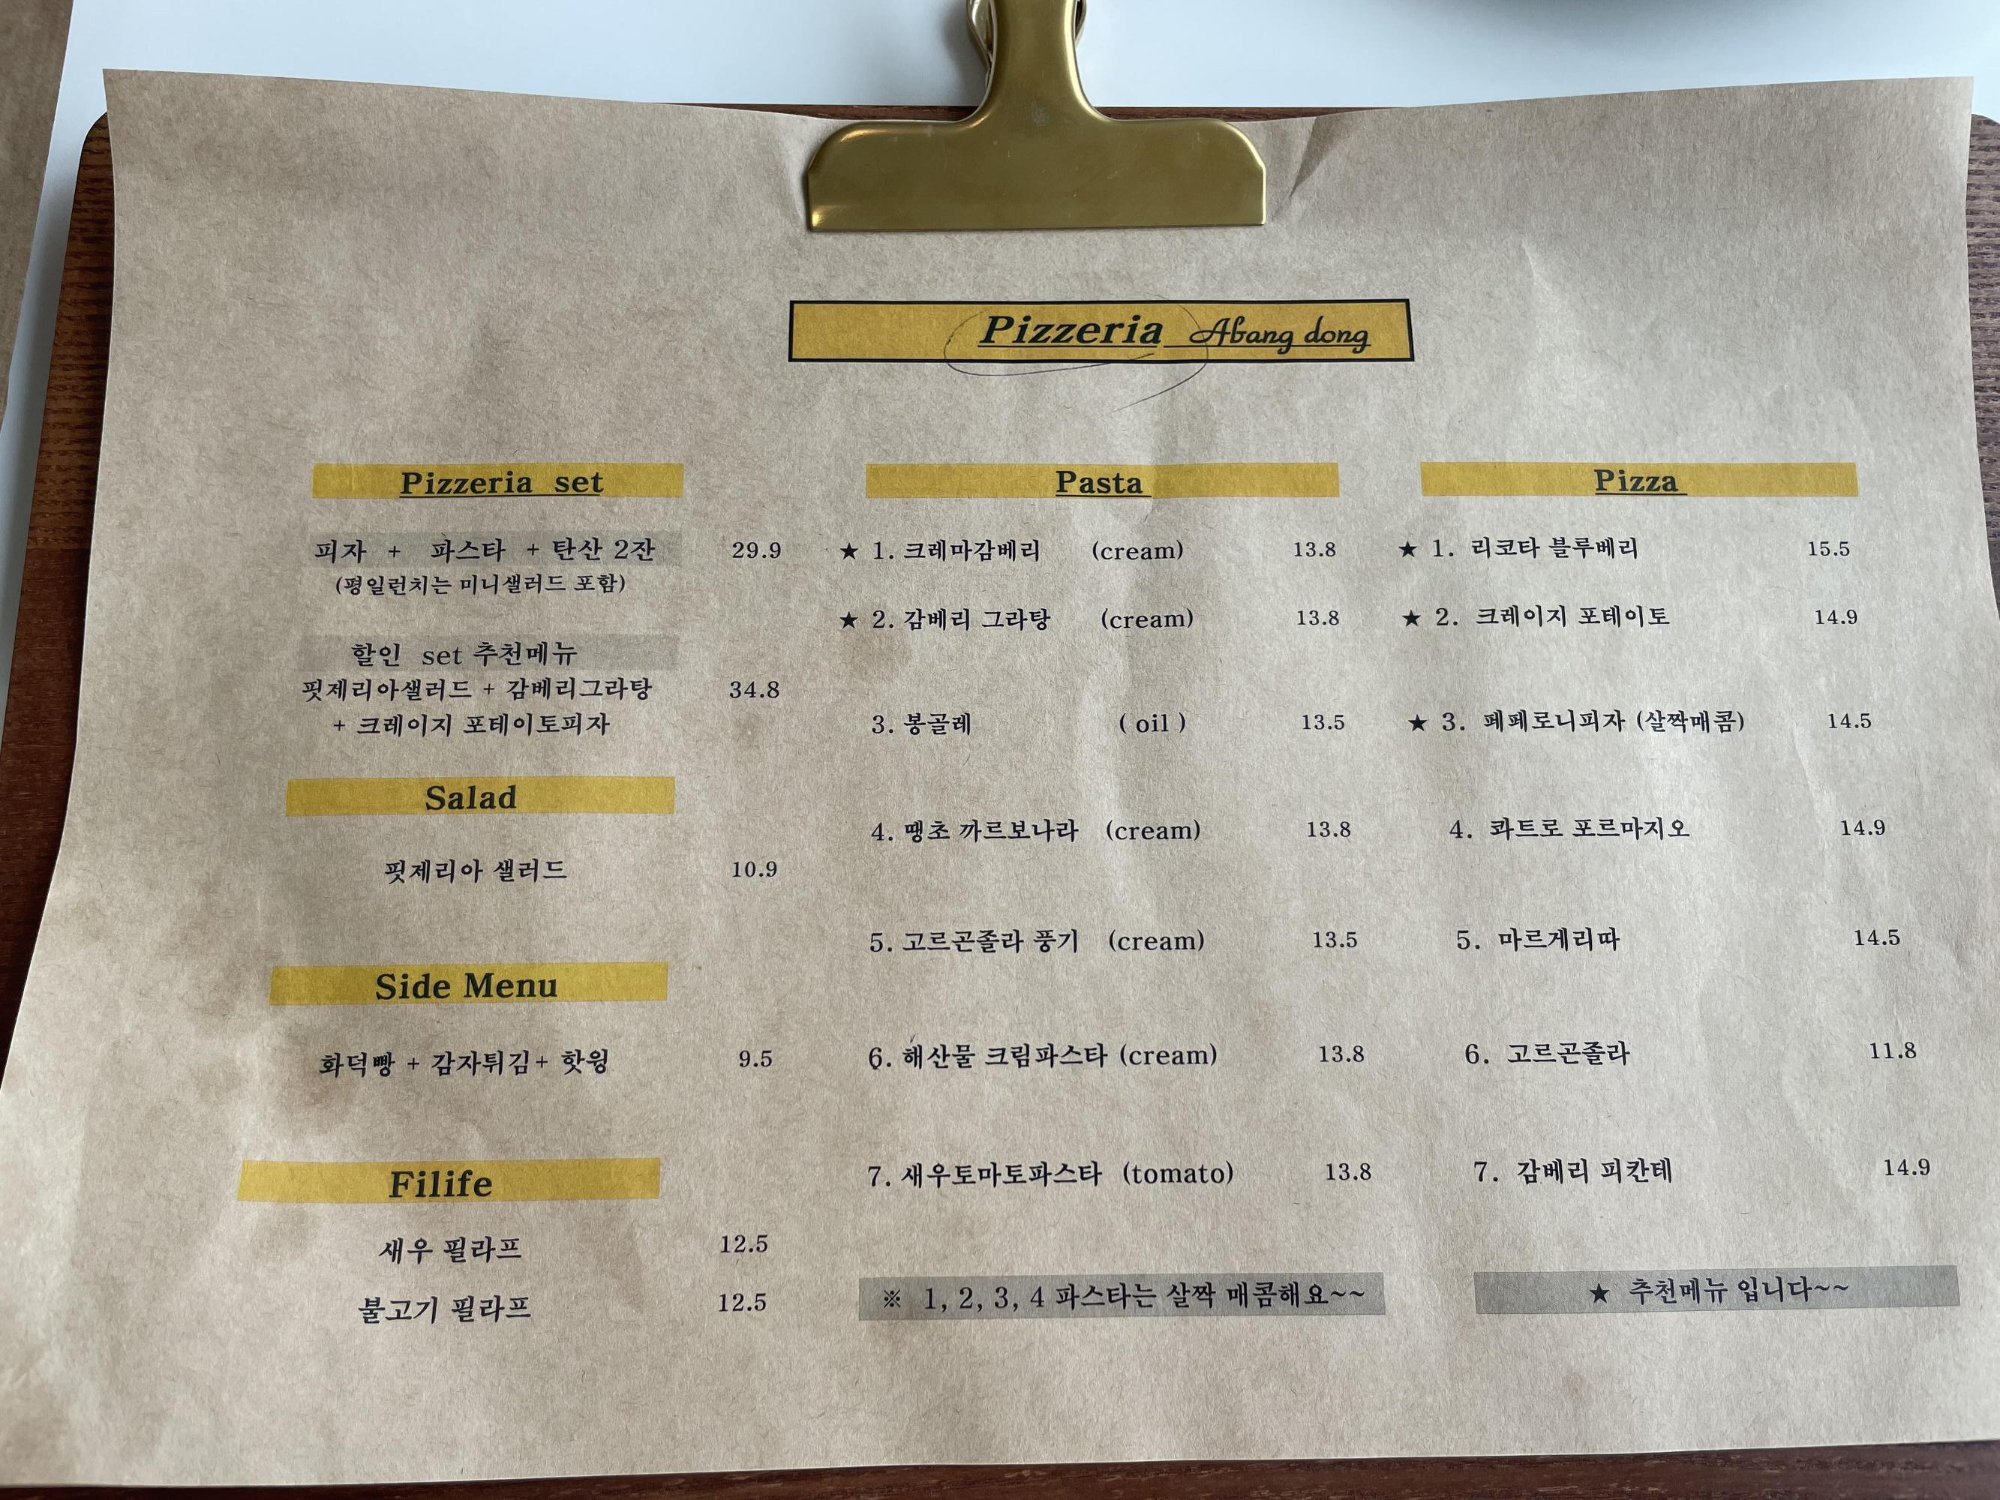 Pizzeria Abang dong
Pizzeria set
피자 + 파스타 + 탄산 2잔 29.9
(평일런치는 미니샐러드 포함)
할인 set 추천메뉴
핏제리아샐러드 + 감베리그라탕 34.8
+ 크레이지 포테이토피자
Salad
핏제리아 샐러드 10.9
Side Menu
화덕빵 + 감자튀김+ 핫윙 9.5
Filife
새우 필라프 12.5
불고기 필라프 12.5
Pasta
★ 1. 크레마감베리 (cream) 13.8
★ 2. 감베리 그라탕 (cream) 13.8
3. 봉골레 ( oil ) 13.5
4. 땡초 까르보나라 (cream) 13.8
5. 고르곤졸라 풍기 (cream) 13.5
6. 해산물 크림파스타 (cream) 13.8
7. 새우토마토파스타 (tomato) 13.8
※ 1, 2, 3, 4 파스타는 살짝 매콤해요~~
Pizza
★ 1. 리코타 블루베리 15.5
★ 2. 크레이지 포테이토 14.9
★ 3. 페페로니피자 (살짝매콤) 14.5
4. 콰트로 포르마지오 14.9
5. 마르게리따 14.5
6. 고르곤졸라 11.8
7. 감베리 피칸테 14.9
★ 추천메뉴 입니다~~